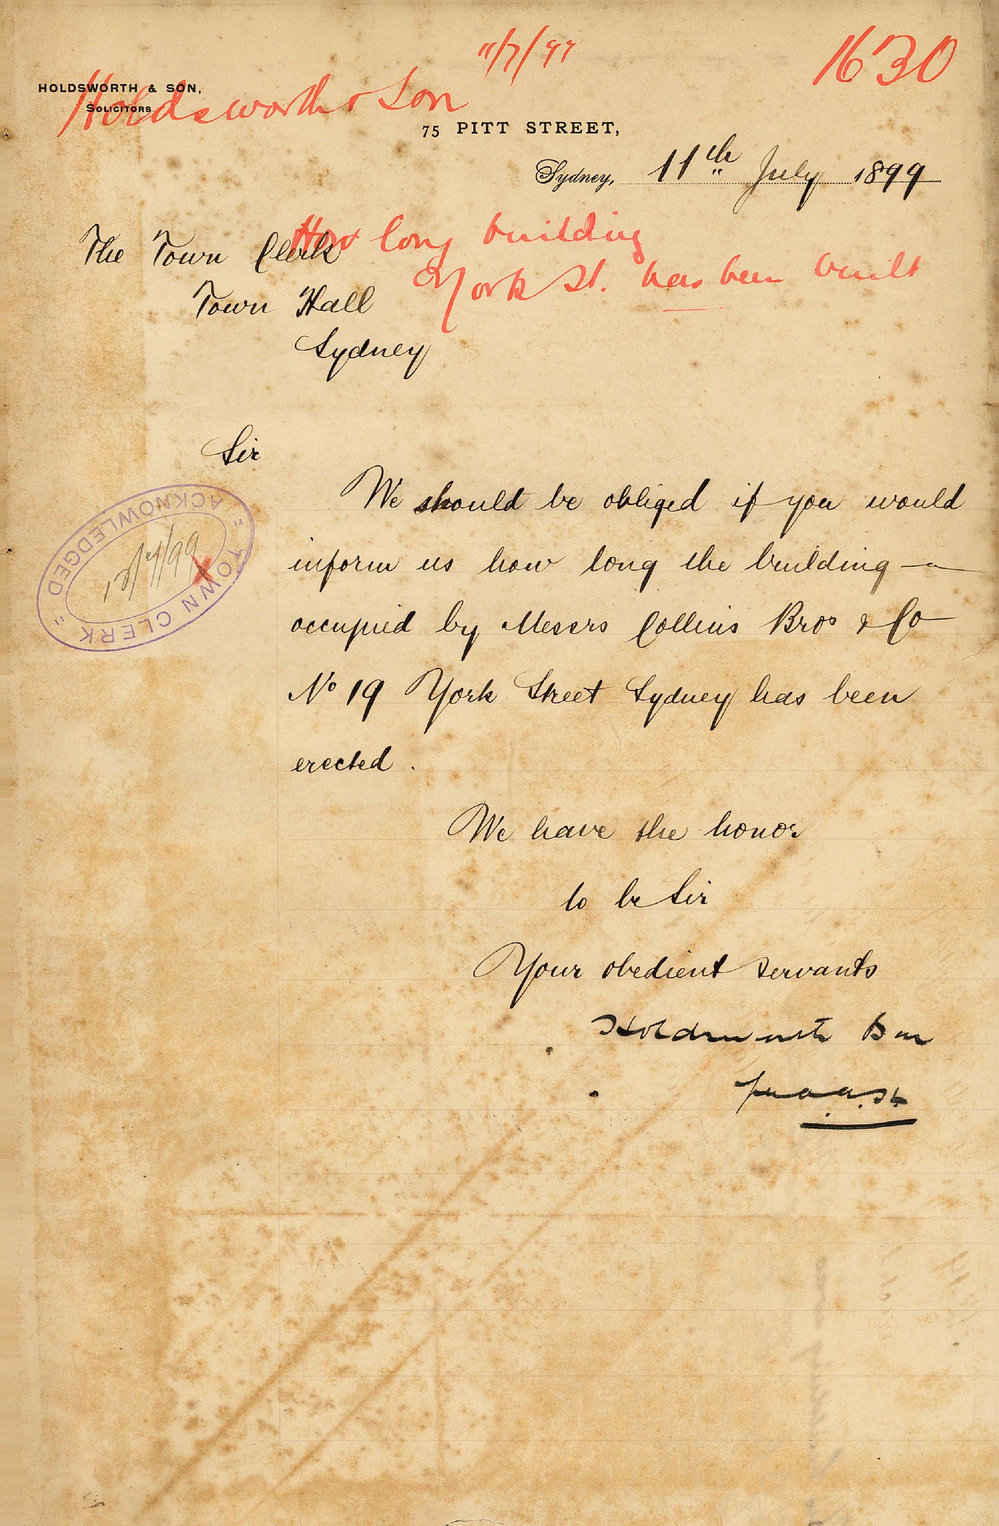 11/7/99
1630
HOLDSWORTH & SON,
SOLICITORS
Holdsworth & Son
75 PITT STREET,
Sydney, 11th July 1899
How long building
York St. has been built
The Town Clerk
Town Hall
Sydney
Sir
We should be obliged if you would
inform us how long the building
occupied by Messrs Collins Bros & Co
No 19 York Street Sydney has been
erected.
We have the honor
to be Sir
Your obedient servants
Holdsworth & Son
= TOWN CLERK =
ACKNOWLEDGED
12/7/99
X